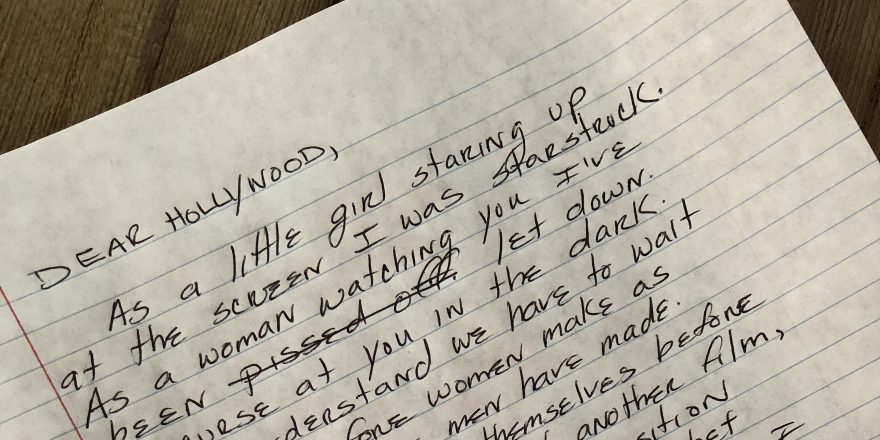 DEAR HOLLYWOOD,
As a little girl staring up
at the screen I was starstruck.
As a woman watching you I've
been pissed off let down.
at you in the dark.
we have to wait
women make as
men have made.
themselves before
another film,
I